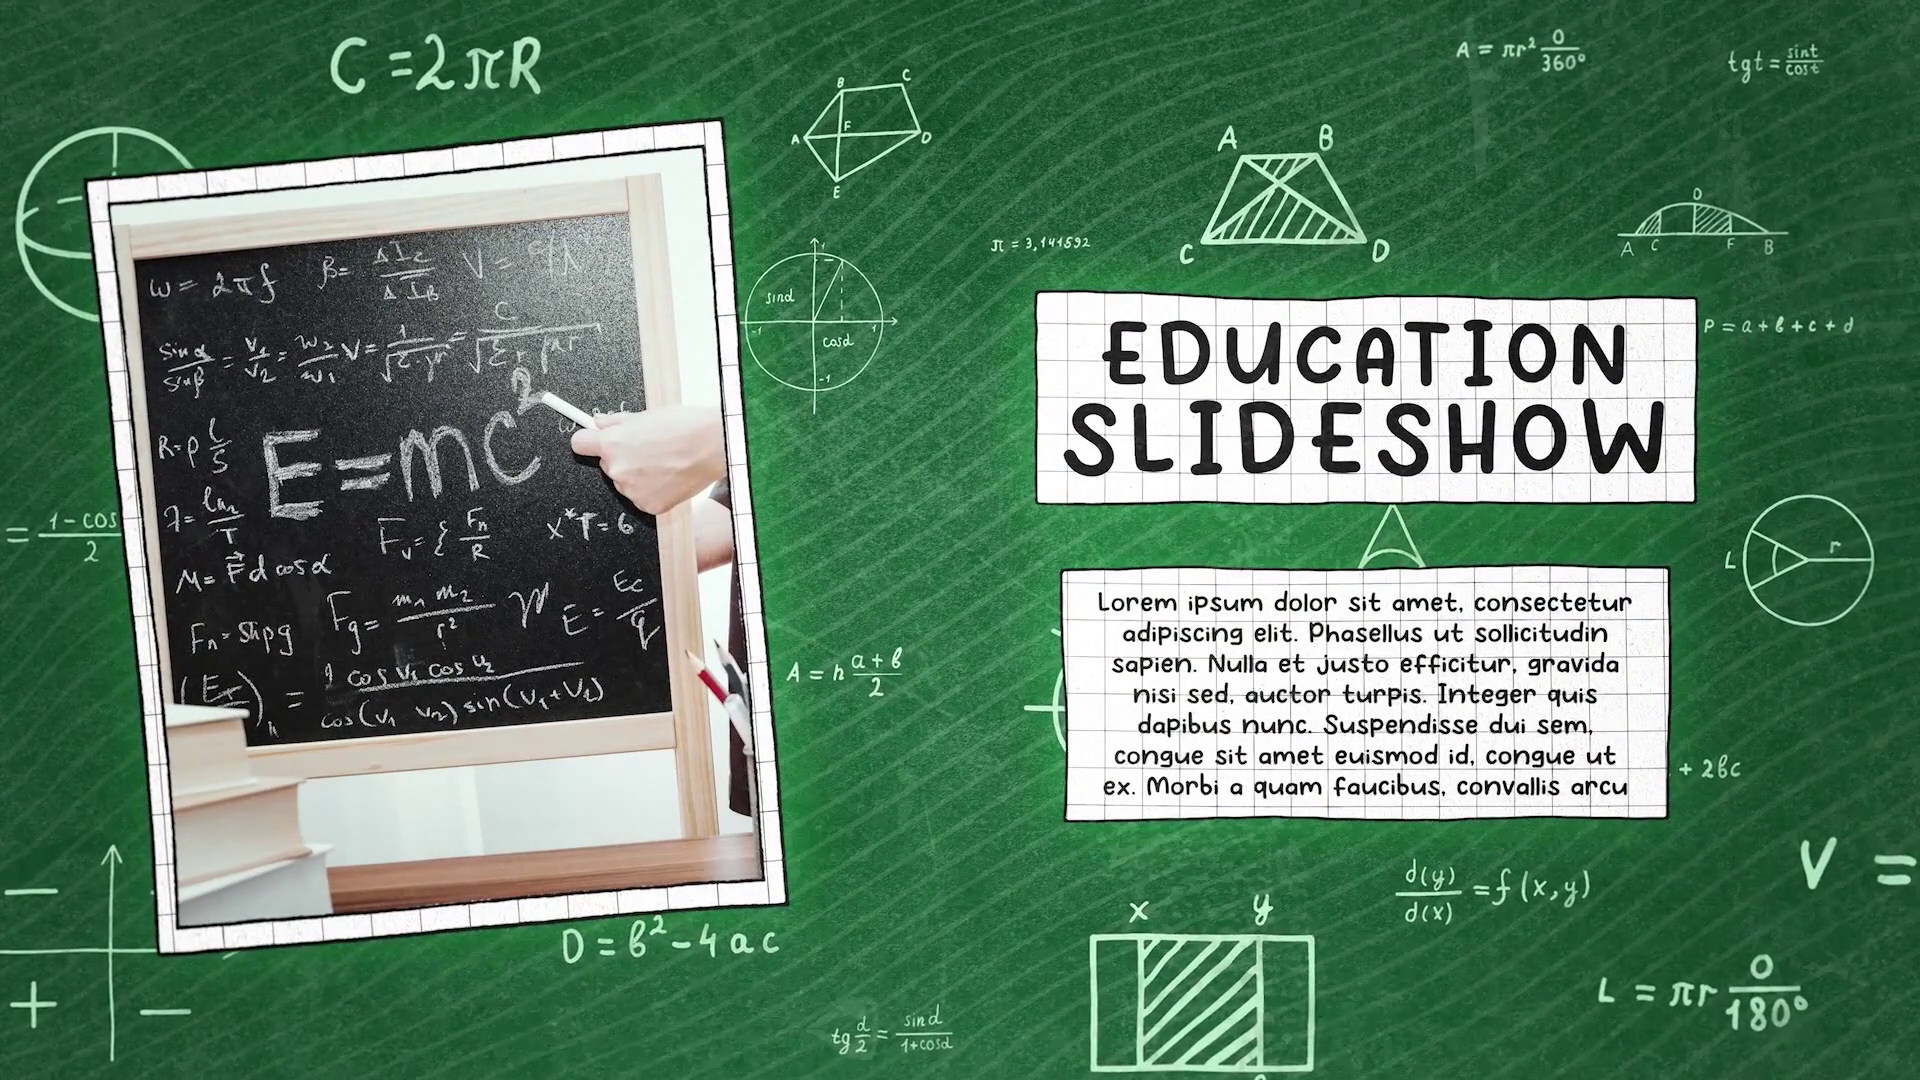 C = 2πR
A = πr² 0/360°
tgt = sint/cost
B C
A F D
E
A B
C D
D
A C F B
π = 3,141592
sind
cosd
1
-1 1
-1
EDUCATION
SLIDESHOW
P = a + b + c + d
ω = 2πf β = ΔI_C/ΔI_B V = c/λ
sinα/sinβ = v₁/v₂ = w₂/w₁
E=mc²
R=ρ l/S
F_v = ξ F_n/R x*T=6
M = F⃗ d cosα
F_g = m₁ m₂/r² E = E_C/q
cos v₁ cos v₂
cos(v₁ v₂) sin(v₁+v₂)
= 1-cos/2
L r
Lorem ipsum dolor sit amet, consectetur
adipiscing elit. Phasellus ut sollicitudin
sapien. Nulla et justo efficitur, gravida
nisi sed, auctor turpis. Integer quis
dapibus nunc. Suspendisse dui sem,
congue sit amet euismod id, congue ut
ex. Morbi a quam faucibus, convallis arcu
A = h a+b/2
+ 2bc
V =
d(y)/d(x) = f(x,y)
x y
D = b² - 4ac
L = πr 0/180°
tg d/2 = sind/1+cosd
- 
+ -